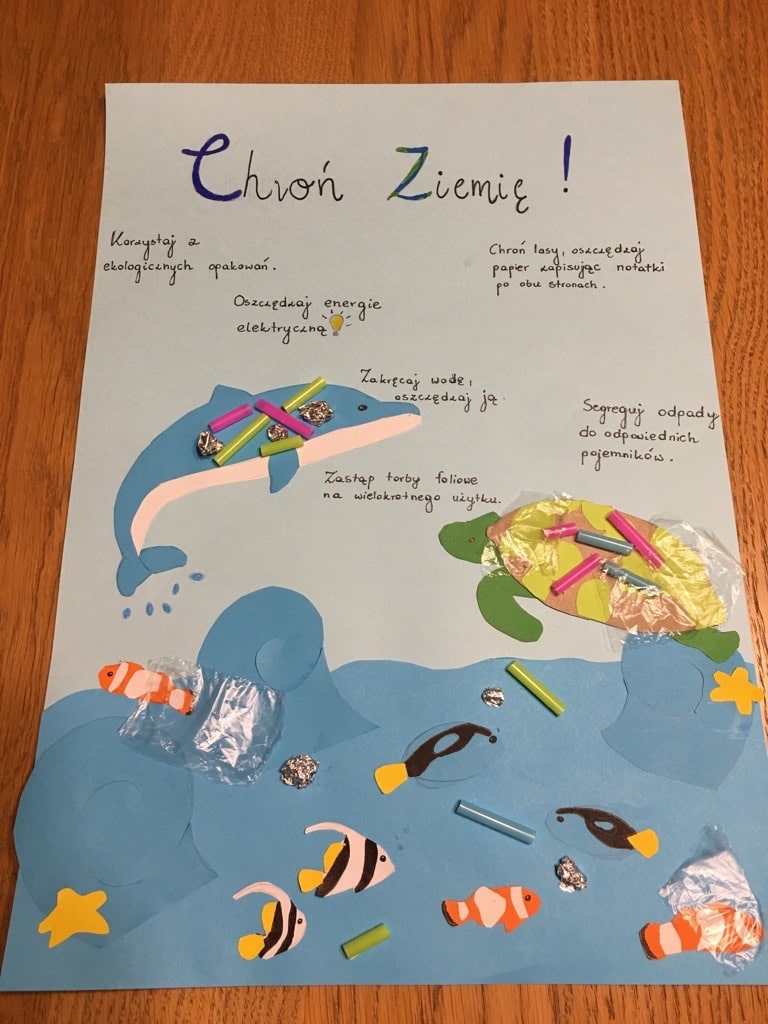 Chroń Ziemię !
Korzystaj z
ekologicznych opakowań.
Chroń lasy, oszczędzaj
papier zapisując notatki
po obu stronach.
Oszczędzaj energie
elektryczną
Zakręcaj wodę,
oszczędzaj ją.
Segreguj odpady
do odpowiednich
pojemników.
Zastąp torby foliowe
na wielokrotnego użytku.